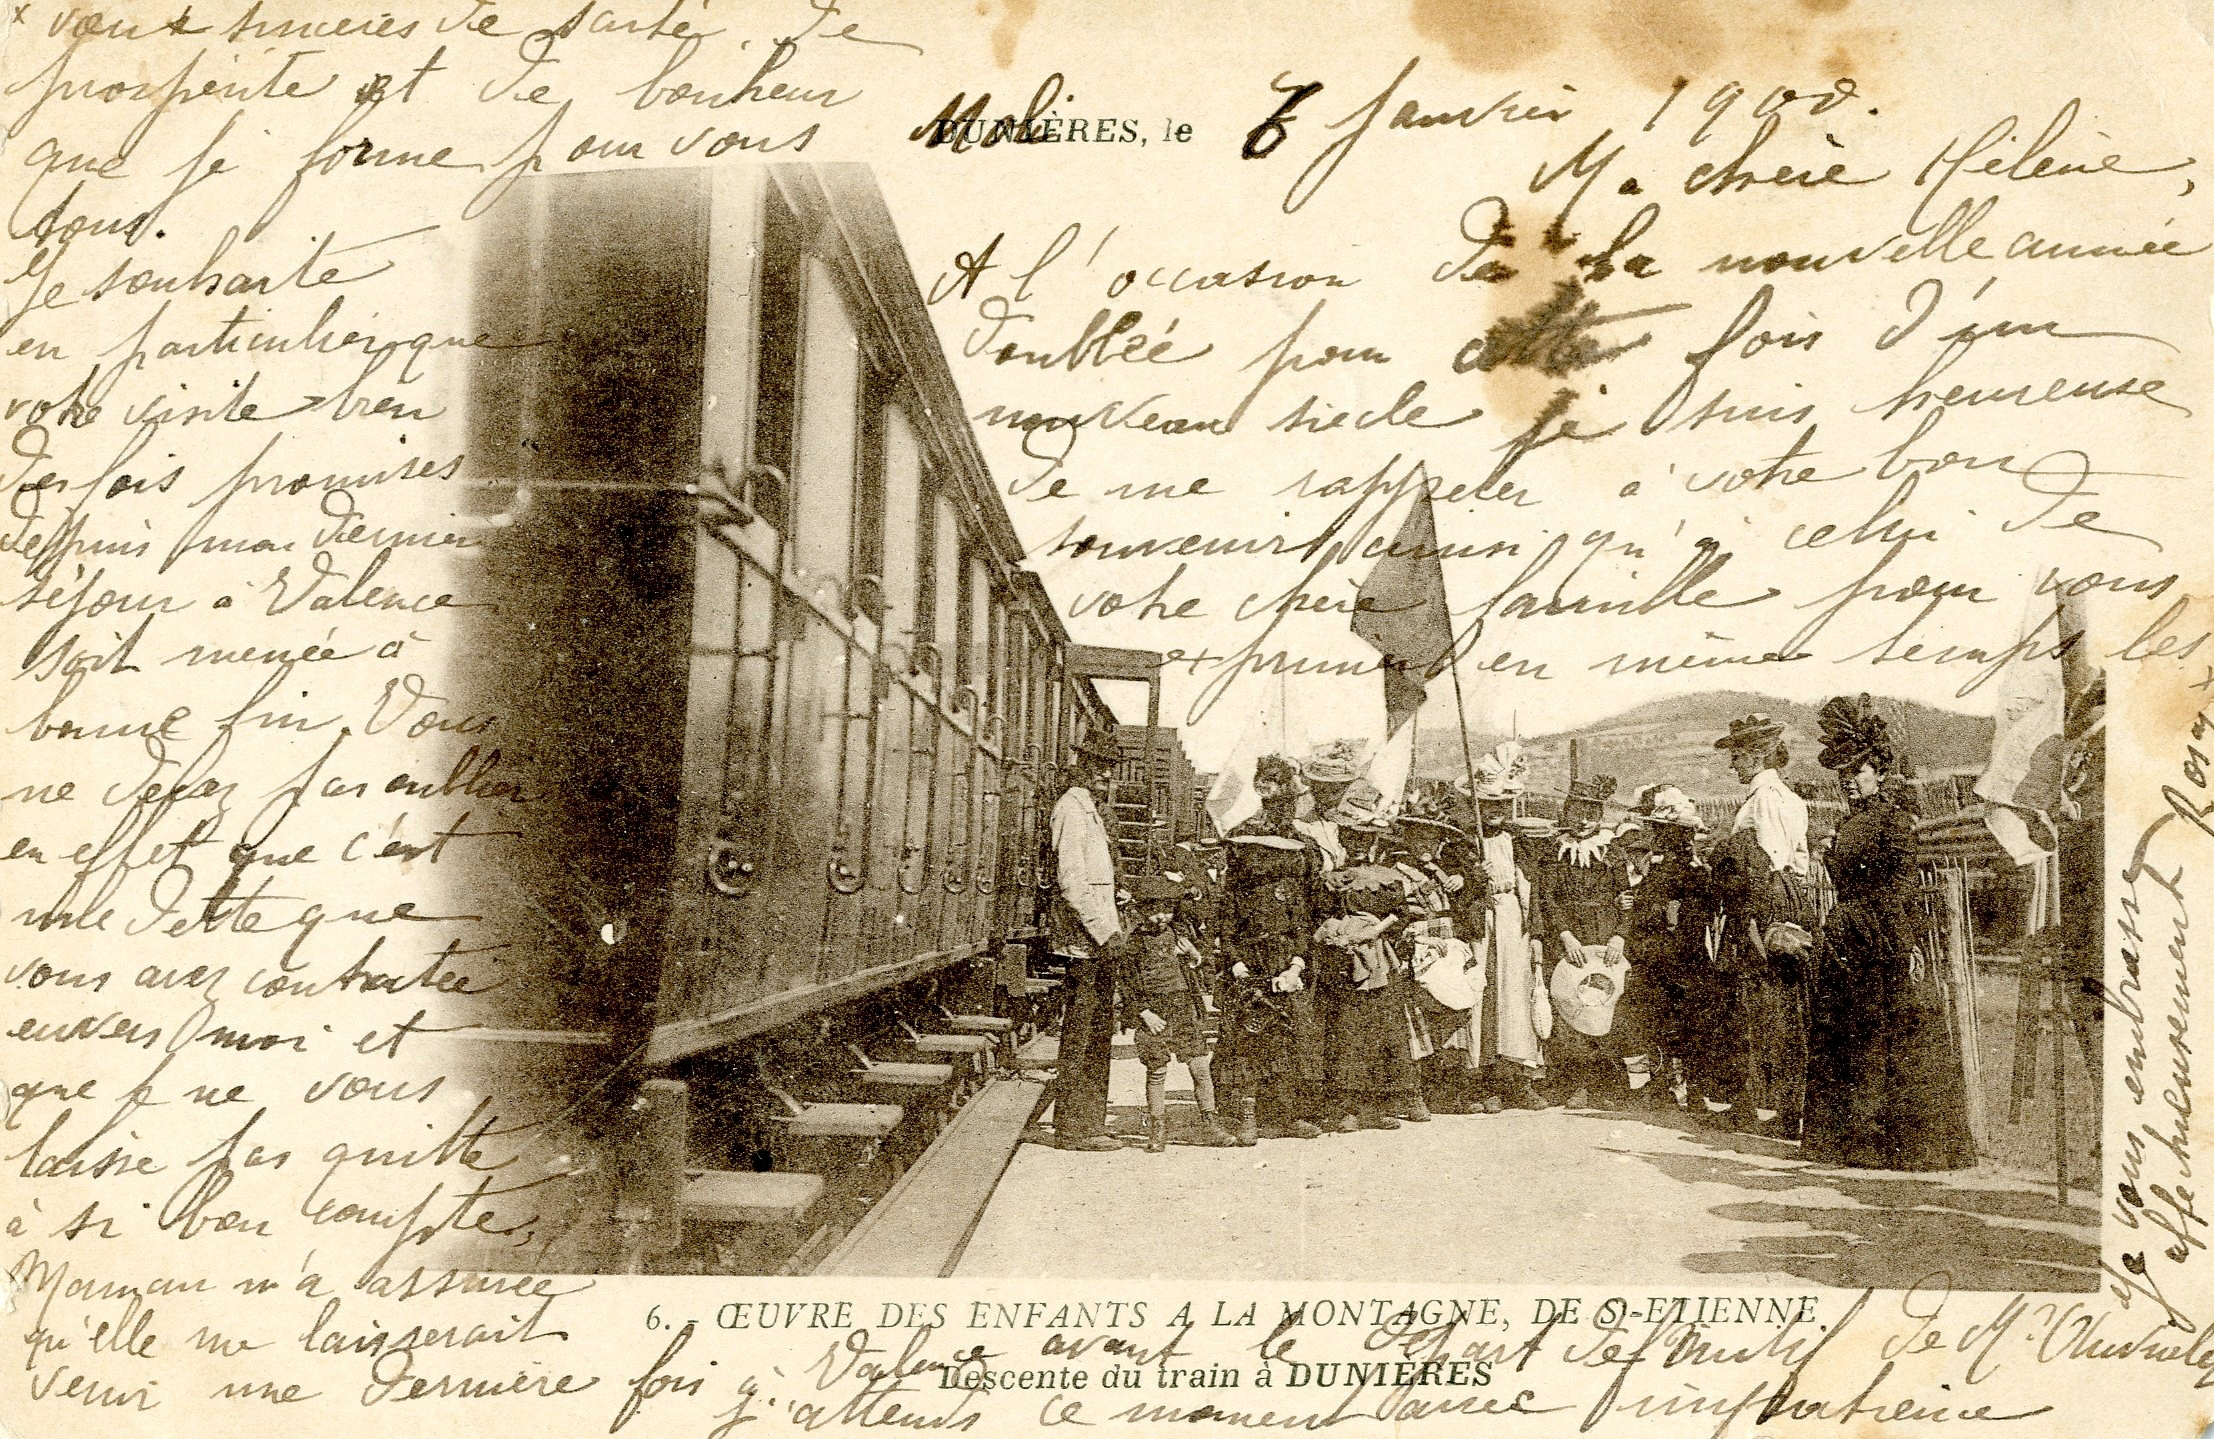 DUNIÈRES, le 7 Janvier 1900.
Ma chère Hélène,
A l'occasion de la nouvelle année
doublée pour cette fois d'un
nouveau siècle je suis heureuse
de me rappeler à votre bon
souvenir ainsi qu'à celui de
votre chère famille pour vous
exprimer en même temps les
x vœux sincères de santé, de
prospérité et de bonheur
que je forme pour vous
tous.
Je souhaite
en particulier que
votre visite bien
des fois promises
depuis mon dernier
séjour à Valence
soit menée à
bonne fin. Vous
ne devez pas oublier
en effet que c'est
une dette que
vous avez contractée
envers moi et
que je ne vous
laisse pas quitte
à si bon compte,
Maman m'a assurée
qu'elle me laisserait
venir une dernière fois à Valence avant le départ définitif de Mr
j'attends ce moment avec impatience
Je vous embrasse
affectueusement Rosa
6. - ŒUVRE DES ENFANTS A LA MONTAGNE, DE St-ETIENNE.
Descente du train à DUNIÈRES